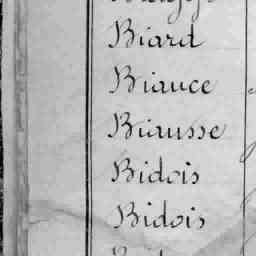 Biard
Biauce
Biausse
Bidois
Bidois